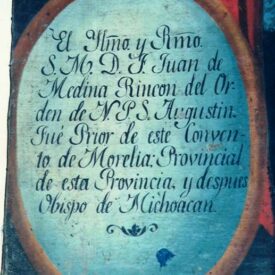 El Yltmo. y Rmo.
S. M. D. F. Juan de
Medina Rincon del Or
den de N. P. S. Augustin.
Fué Prior de este Conven-
to de Morelia: Provincial
de esta Provincia, y despues
Obispo de Michoacan.